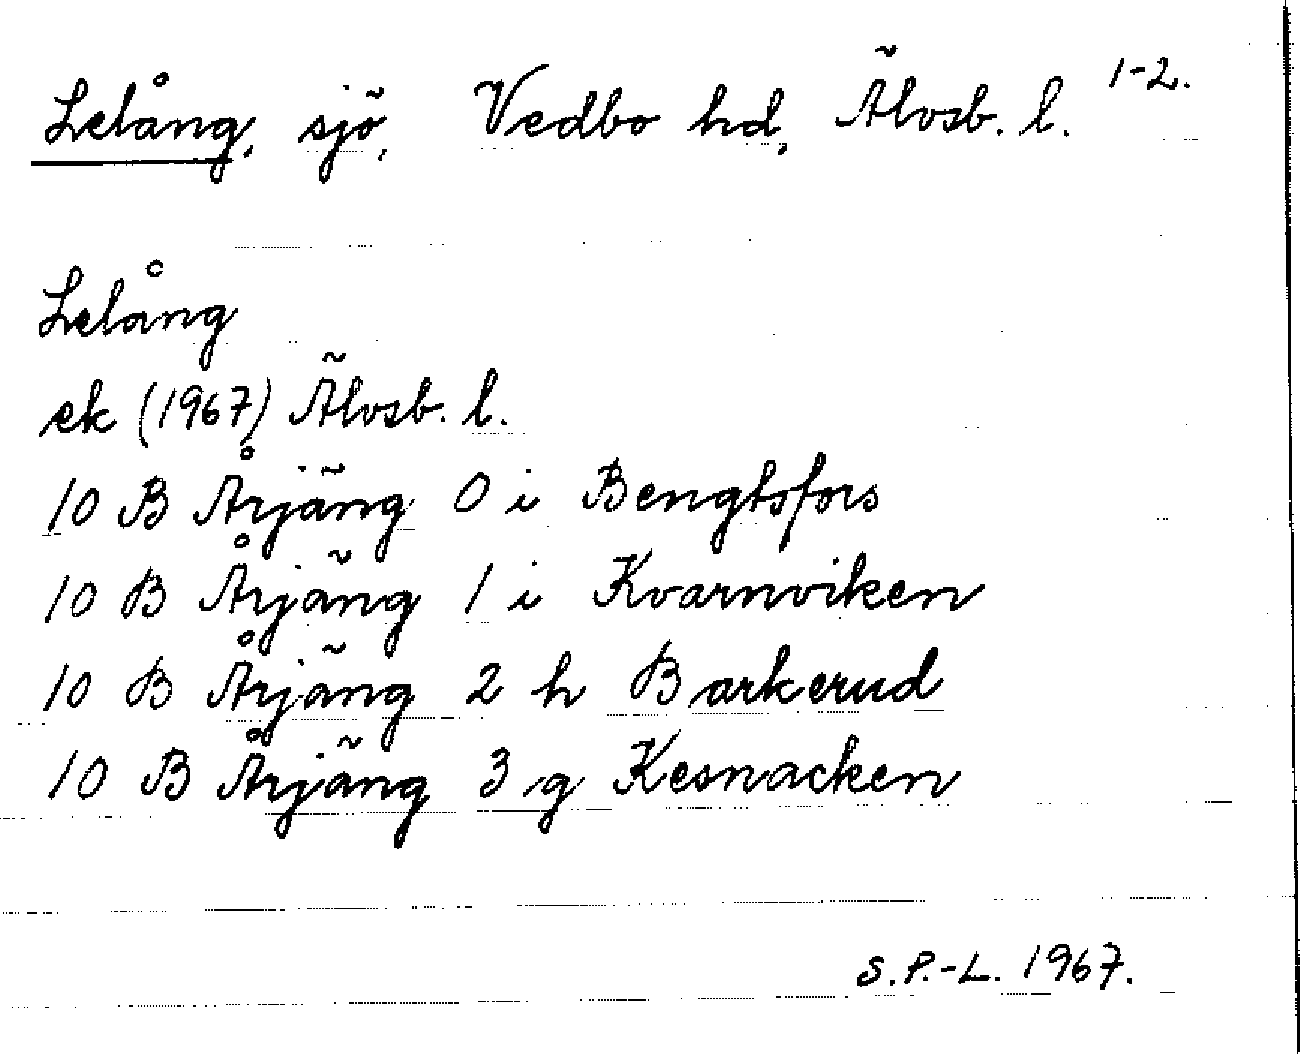 Lelång, sjö, Vedbo hd, Älvsb. l. 1-2.
Lelång
ek (1967) Älvsb. l.
10 B Årjäng 0 i Bengtsfors
10 B Årjäng 1 i Kvarnviken
10 B Årjäng 2 h Barkerud
10 B Årjäng 3 g Kesnacken
S.P.-L. 1967.